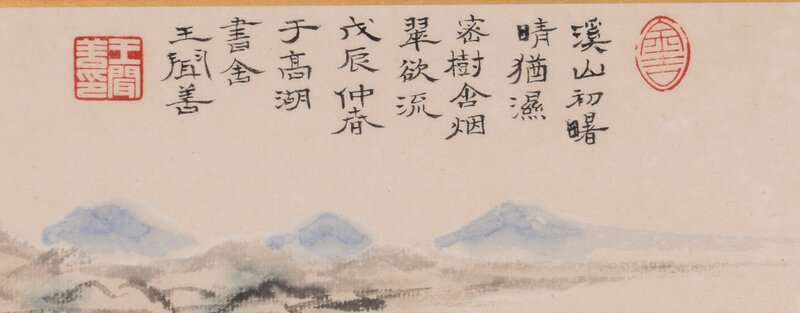 溪山初曙
晴猶濕
密樹含烟
翠欲流
戊辰仲春
于高湖
書舍
王聞善
王聞
善印